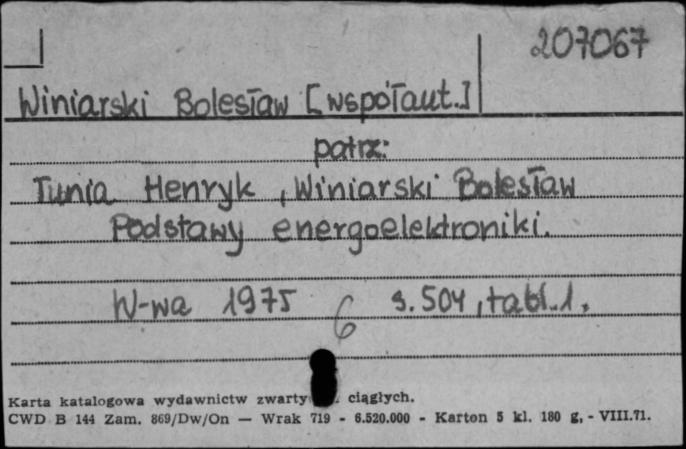 207067
Winiarski Bolesław [współaut.]
patrz:
Tunia Henryk, Winiarski Bolesław
Podstawy energoelektroniki.
W-wa 1975 s. 504, tabl. 1.
6
Karta katalogowa wydawnictw zwarty ciągłych.
CWD B 144 Zam. 869/Dw/On — Wrak 719 - 6.520.000 - Karton 5 kl. 180 g, - VIII.71.